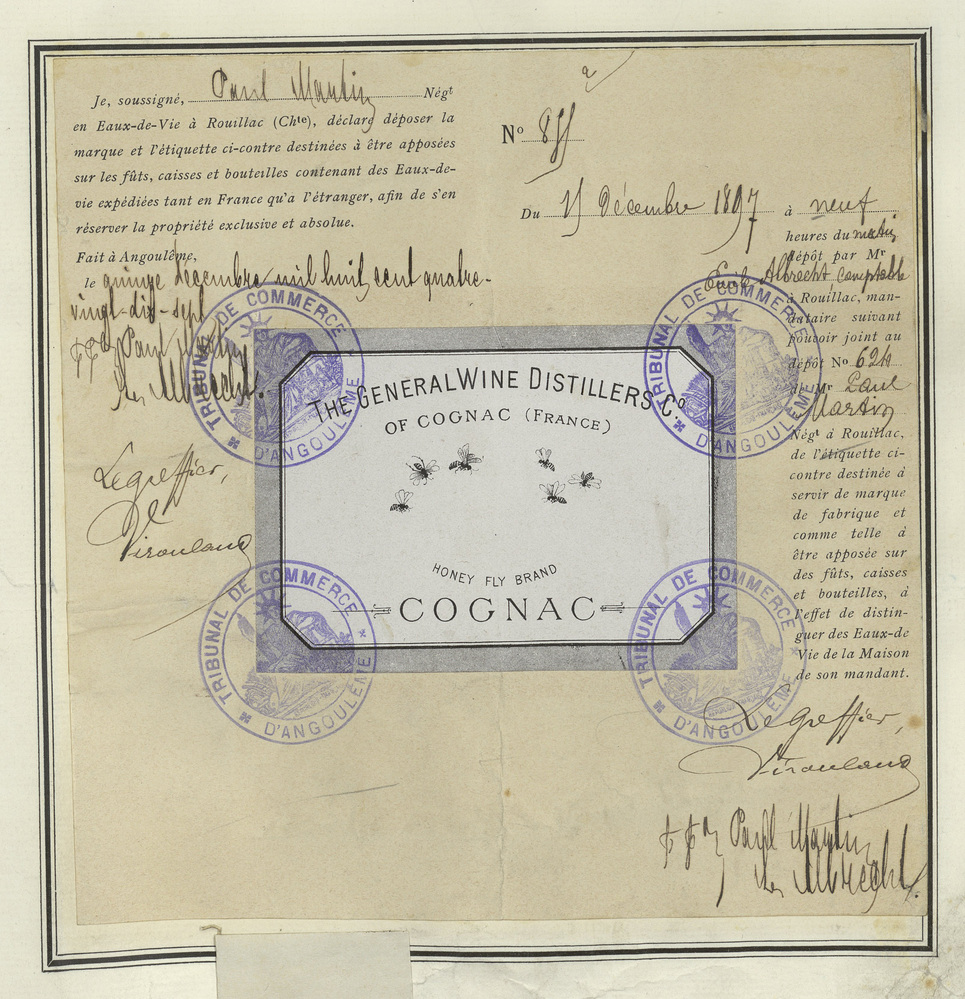 Je, soussigné, Paul Martin Négt
en Eaux-de-Vie à Rouillac (Chte), déclare déposer la
marque et l'étiquette ci-contre destinées à être apposées
sur les fûts, caisses et bouteilles contenant des Eaux-de-
vie expédiées tant en France qu'a l'étranger, afin de s'en
réserver la propriété exclusive et absolue.
Fait à Angoulême,
le quinze décembre mil huit cent quatre-
vingt-dix-sept
Paul Martin
Albrecht.
Le greffier,
No
Du 15 Décembre 1897 à neuf
heures du matin
dépôt par Mr
Albrecht, comptable
à Rouillac, man-
dataire suivant
pouvoir joint au
dépôt No 624
de Mr Paul
Martin
Négt à Rouillac,
de l'étiquette ci-
contre destinée à
servir de marque
de fabrique et
comme telle à
être apposée sur
des fûts, caisses
et bouteilles, à
l'effet de distin-
guer des Eaux-de
Vie de la Maison
de son mandant.
Le Greffier,
Paul Martin
Albrecht.
THE GENERAL WINE DISTILLERS Co.
OF COGNAC (FRANCE)
HONEY FLY BRAND
COGNAC
TRIBUNAL DE COMMERCE
D'ANGOULEME
TRIBUNAL DE COMMERCE
D'ANGOULEME
TRIBUNAL DE COMMERCE
D'ANGOULEME
TRIBUNAL DE COMMERCE
D'ANGOULEME